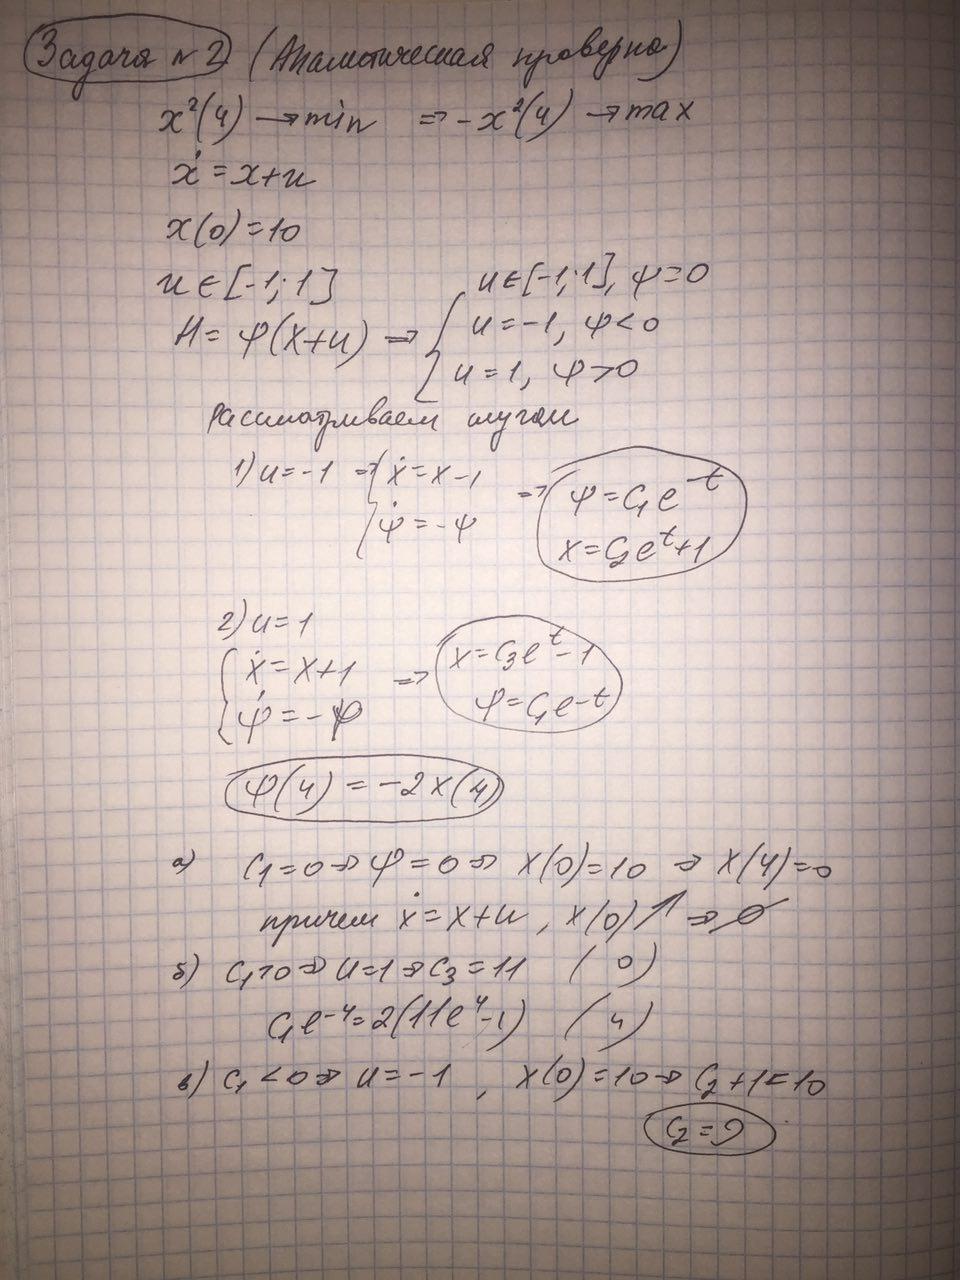 Задача №2 (Аналитическая проверка)
x²(4) → min ⇒ -x²(4) → max
ẋ = x+u
x(0) = 10
u ∈ [-1; 1]
u ∈ [-1; 1], ψ = 0
H = ψ(x+u) ⇒ { u = -1, ψ < 0
u = 1, ψ > 0
Рассматриваем случаи
1) u = -1 ⇒ { ẋ = x - 1
ψ̇ = -ψ
⇒ ψ = C₁e^{-t}
x = C₂e^t + 1
2) u = 1
{ ẋ = x+1
ψ̇ = -ψ
⇒ x = C₃e^t - 1
ψ = C₁e^{-t}
ψ(4) = -2x(4)
а) C₁ = 0 ⇒ ψ = 0 ⇒ x(0) = 10 ⇒ x(4) = 0
причем ẋ = x+u, x(0)↑ ⇒ ∅
б) C₁ > 0 ⇒ u = 1 ⇒ C₃ = 11 (0)
C₁e^{-4} = 2(11e^4 - 1) (4)
в) C₁ < 0 ⇒ u = -1, x(0) = 10 ⇒ C₂ + 1 = 10
C₂ = 9